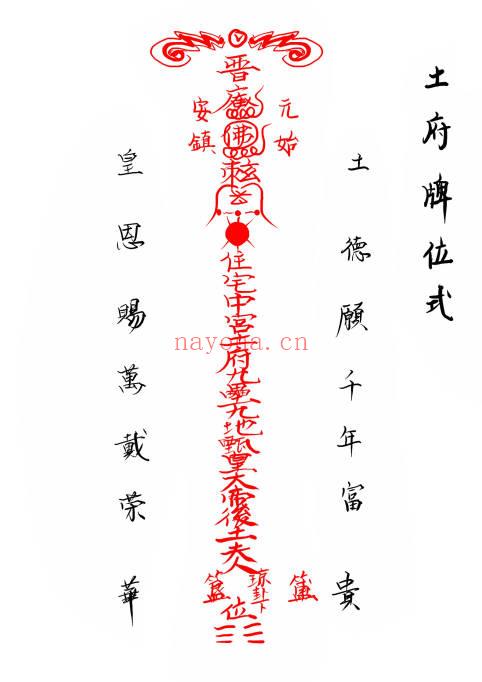 土府牌位式
土德願千年富貴
元始
安鎮
佛
住宅中宮土府九壘九地皇大帝後土夫人
位
皇恩賜萬戴荣華
nayona.cn